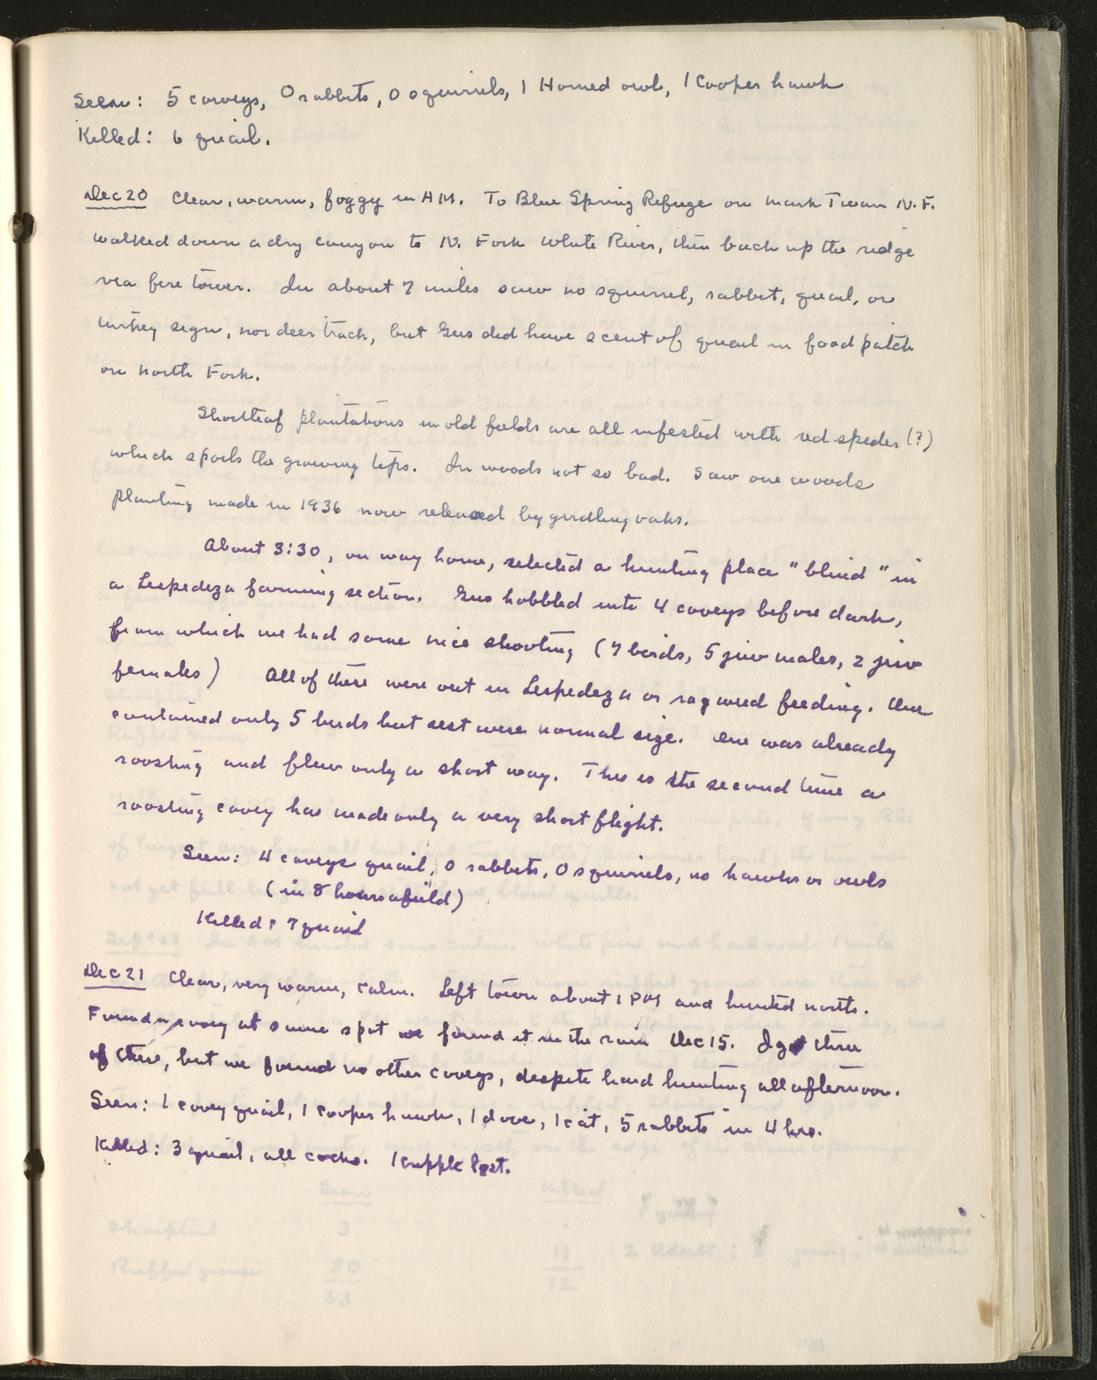 Seen: 5 coveys, 0 rabbits, 0 squirrels, 1 Horned owl, 1 Cooper hawk
Killed: 6 quail.
Dec 20 Clear, warm, foggy in AM. To Blue Spring Refuge on Mark Twain N.F.
Walked down a dry canyon to N. Fork White River, then back up the ridge
via fire tower. In about 7 miles saw no squirrel, rabbit, quail, or
turkey sign, nor deer track, but Gus did have scent of quail in food patch
on North Fork.
Shortleaf plantations in old fields are all infested with red spider (?)
which spoils the growing tips. In woods not so bad. Saw one woods
planting made in 1936 now released by girdling oaks.
About 3:30, on way home, selected a hunting place "blind" in
a Lespedeza farming section. Gus hobbled into 4 coveys before dark,
from which we had some nice shooting (7 birds, 5 juv males, 2 juv
females) All of these were out in Lespedeza or ragweed feeding. One
contained only 5 birds but rest were normal size. One was already
roosting and flew only a short way. This is the second time a
roosting covey has made only a very short flight.
Seen: 4 coveys quail, 0 rabbits, 0 squirrels, no hawks or owls
(in 8 hours afield)
Killed: 7 quail
Dec 21 Clear, very warm, calm. Left town about 1 PM and hunted north.
Found a covey at same spot we found it in the rain Dec 15. I got three
of these, but we found no other coveys, despite hard hunting all afternoon.
Seen: 1 covey quail, 1 Cooper hawk, 1 dove, 1 cat, 5 rabbits in 4 hrs.
Killed: 3 quail, all cocks. 1 cripple lost.